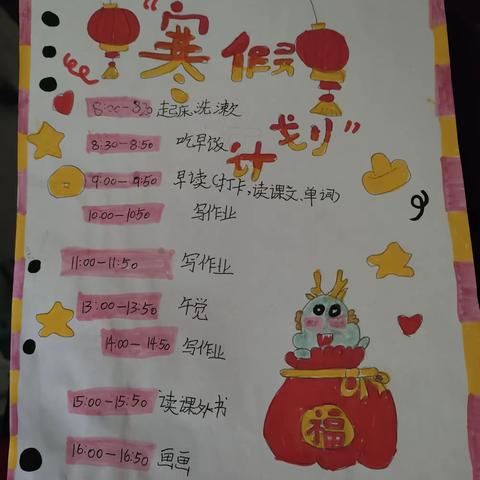 “寒假
计划”
8:00-8:30 起床、洗漱
8:30-8:50 吃早饭
9:00-9:50 早读(打卡,读课文、单词)
10:00-10:50 写作业
11:00-11:50 写作业
13:00-13:50 午觉
14:00-14:50 写作业
15:00-15:50 读课外书
16:00-16:50 画画
福